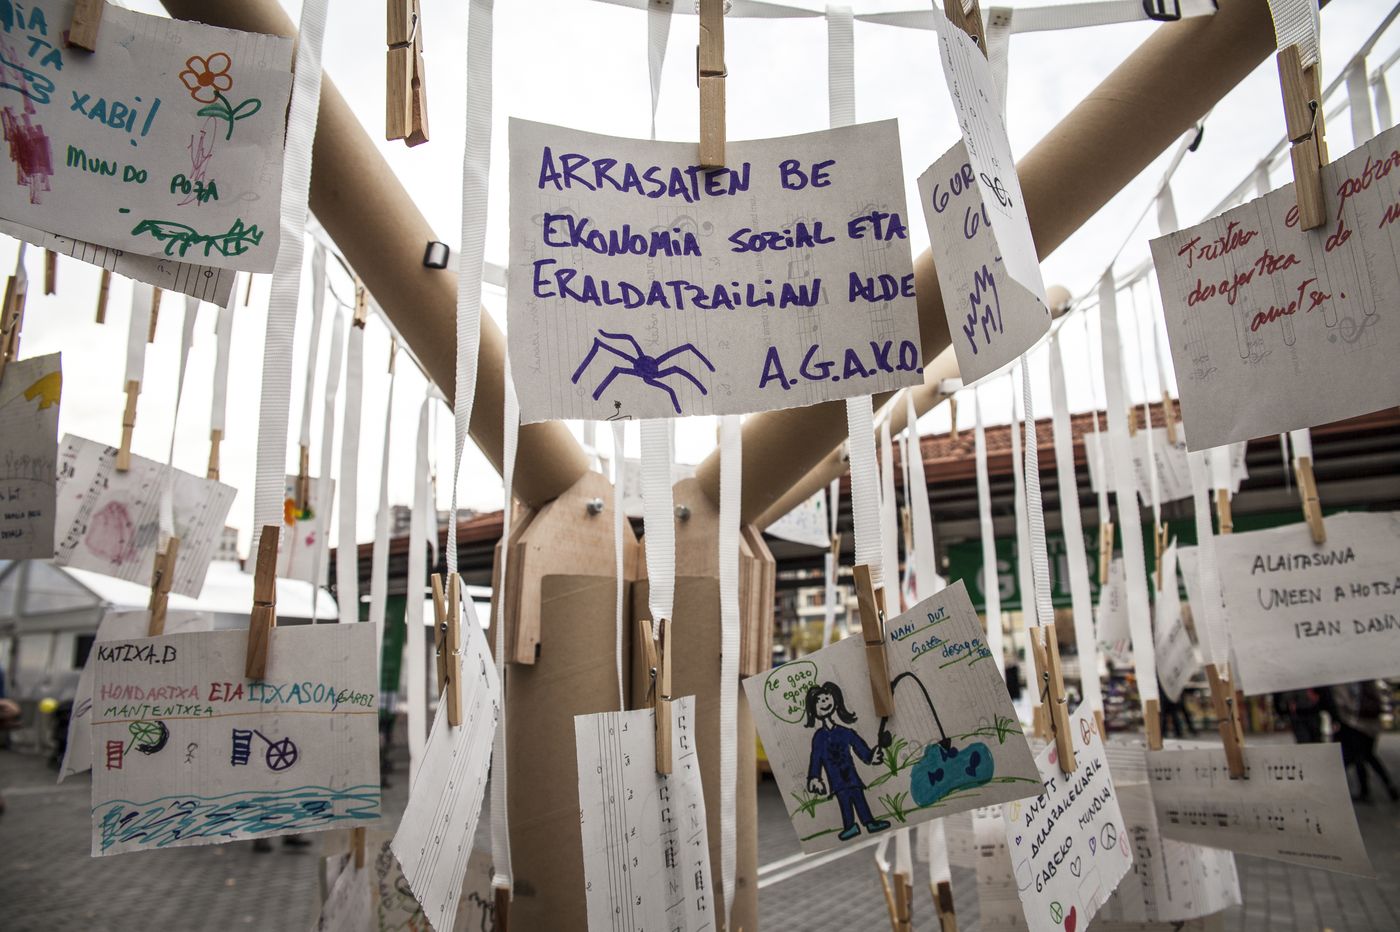 XABI!
MUNDO POZA
ARRASATEN BE
EKONOMIA SOZIAL ETA
ERALDATZAILIAN ALDE
A.G.A.K.O.
GUR
GU
Tristeza
pobreza
desagertzea
ametsa.
ALAITASUNA
UMEEN AHOTSA
IZAN DADIN
KATIXA.B
HONDARTXA ETA ITXASOA GARBI
MANTENTXEA
NAHI DUT
Gozea
desager
Ze gozo
egongo
da!!
AMETS DUT
ARRAZAKERIARIK
GABEKO MUNDUA